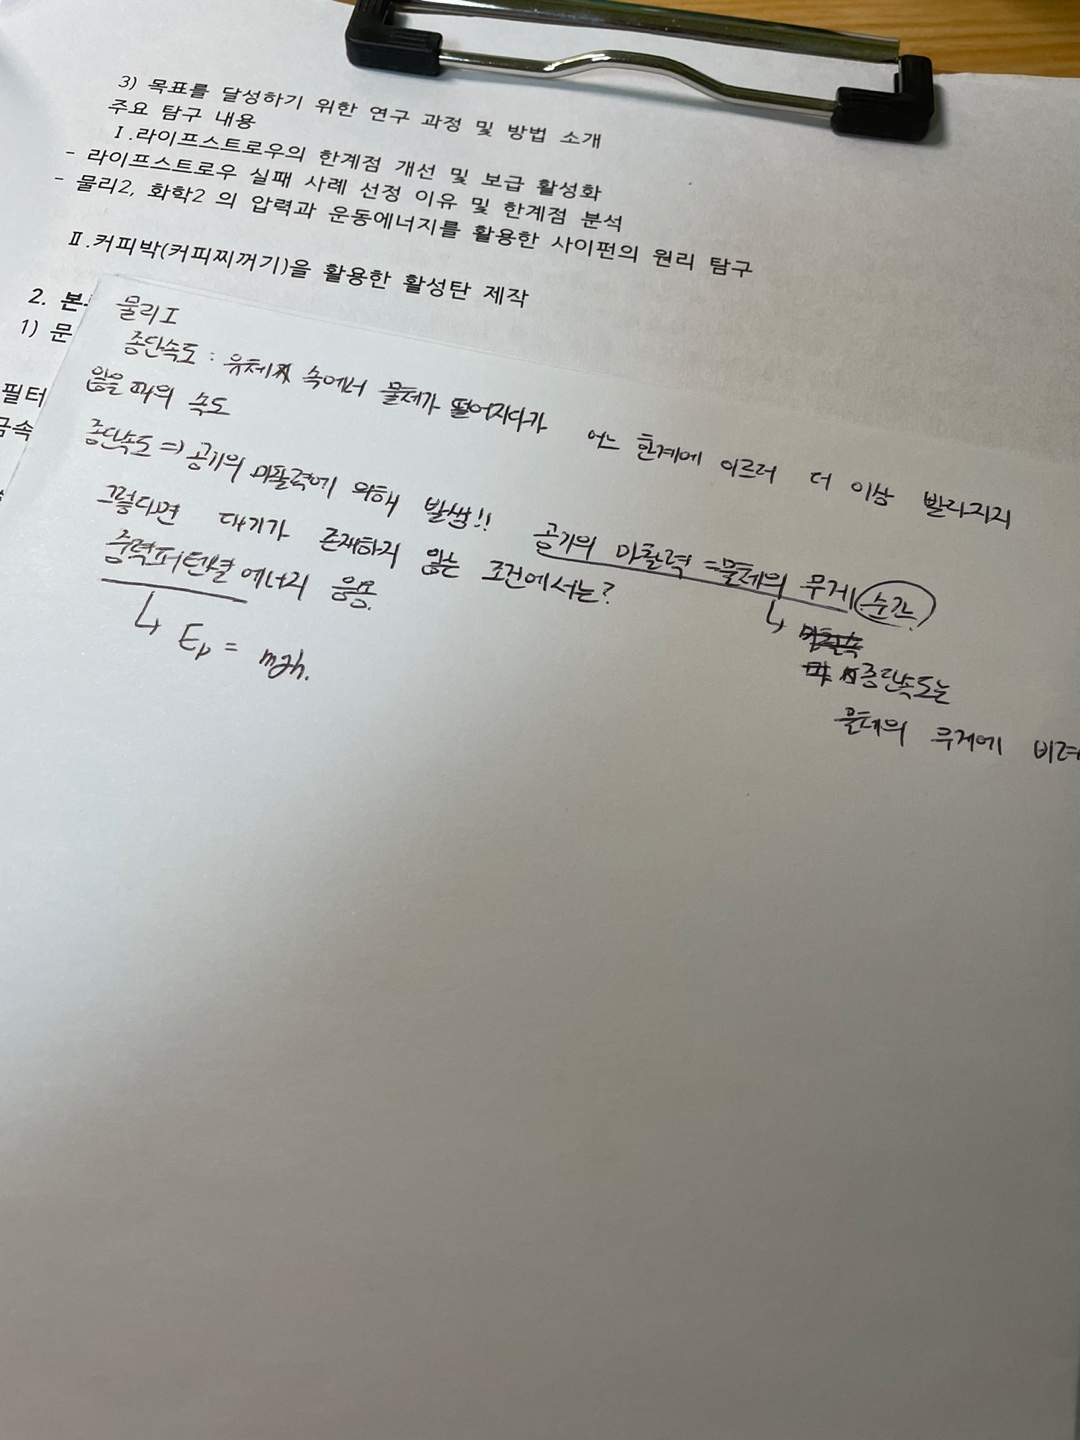 3) 목표를 달성하기 위한 연구 과정 및 방법 소개
주요 탐구 내용
Ⅰ.라이프스트로우의 한계점 개선 및 보급 활성화
- 라이프스트로우 실패 사례 선정 이유 및 한계점 분석
- 물리2, 화학2 의 압력과 운동에너지를 활용한 사이펀의 원리 탐구
Ⅱ.커피박(커피찌꺼기)을 활용한 활성탄 제작
2. 본
1) 문
필터
금속
물리Ⅰ
종단속도 : 유체 속에서 물체가 떨어지다가 어느 한계에 이르러 더 이상 빨라지지
않을 때의 속도
종단속도 => 공기의 마찰력에 의해 발생!! 공기의 마찰력 = 물체의 무게 순간
↳
종단속도는
물체의 무게에 비례
그렇다면 대기가 존재하지 않는 조건에서는?
중력퍼텐셜 에너지 응용.
↳ Ep = mgh.